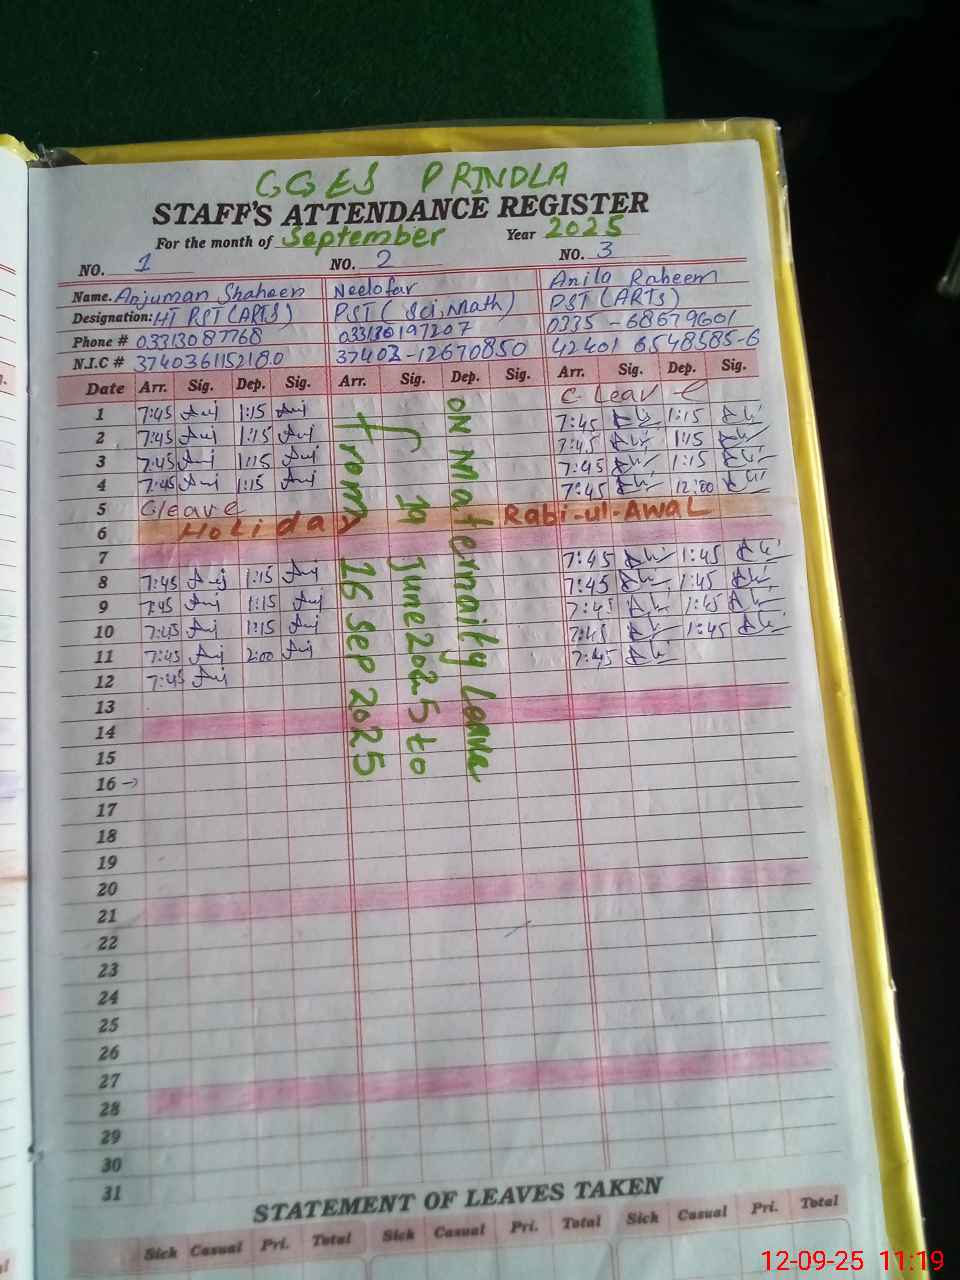 GGES PRINDLA
STAFF'S ATTENDANCE REGISTER
For the month of September Year 2025
NO. 1 NO. 2 NO. 3
Name. Anjuman Shaheen Neelofar Anila Raheem
Designation: HT PST (ARTS) PST ( Sci, Math) PST (ARTS)
Phone # 03313087768 033136197207 0335 - 68679601
N.I.C # 3740361152180 37403-12670850 42401 6548585-6
Date Arr. Sig. Dep. Sig. Arr. Sig. Dep. Sig. Arr. Sig. Dep. Sig.
1 7:45 1:15 C. Leave
2 7:45 1:15 7:45 1:15
3 7:45 1:15 7:45 1:15
4 7:45 1:15 7:45 1:15
5 C leave 7:45 12:00
6 Holiday Rabi-ul-Awal
7
8 7:45 1:15 7:45 1:45
9 7:45 1:15 7:45 1:45
10 7:45 1:15 7:45 1:45
11 7:45 2:00 7:45 1:45
12 7:45 7:45
13
14
15
16
17
18
19
20
21
22
23
24
25
26
27
28
29
30
31
ON Maternaity Leave
from 19 June 2025 to
16 Sep 2025
STATEMENT OF LEAVES TAKEN
Sick Casual Pri. Total Sick Casual Pri. Total Sick Casual Pri. Total
12-09-25 11:19